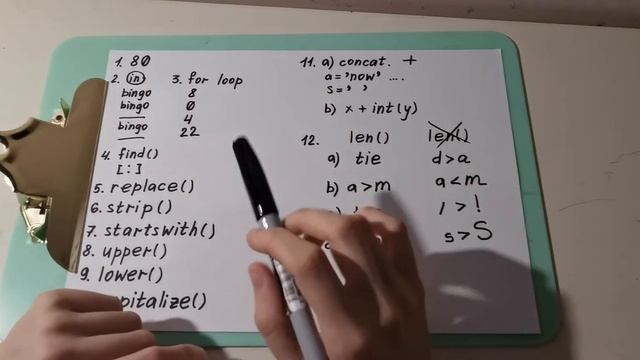 1. 80
2. in
bingo
bingo
bingo
3. for loop
8
0
4
22
4. find()
[:]
5. replace()
6. strip()
7. startswith()
8. upper()
9. lower()
pitalize()
11. a) concat. +
a = 'now' ....
s = ' '
b) x + int(y)
12. len() len()
a) tie d > a
b) a > m a < m
! > !
s > S